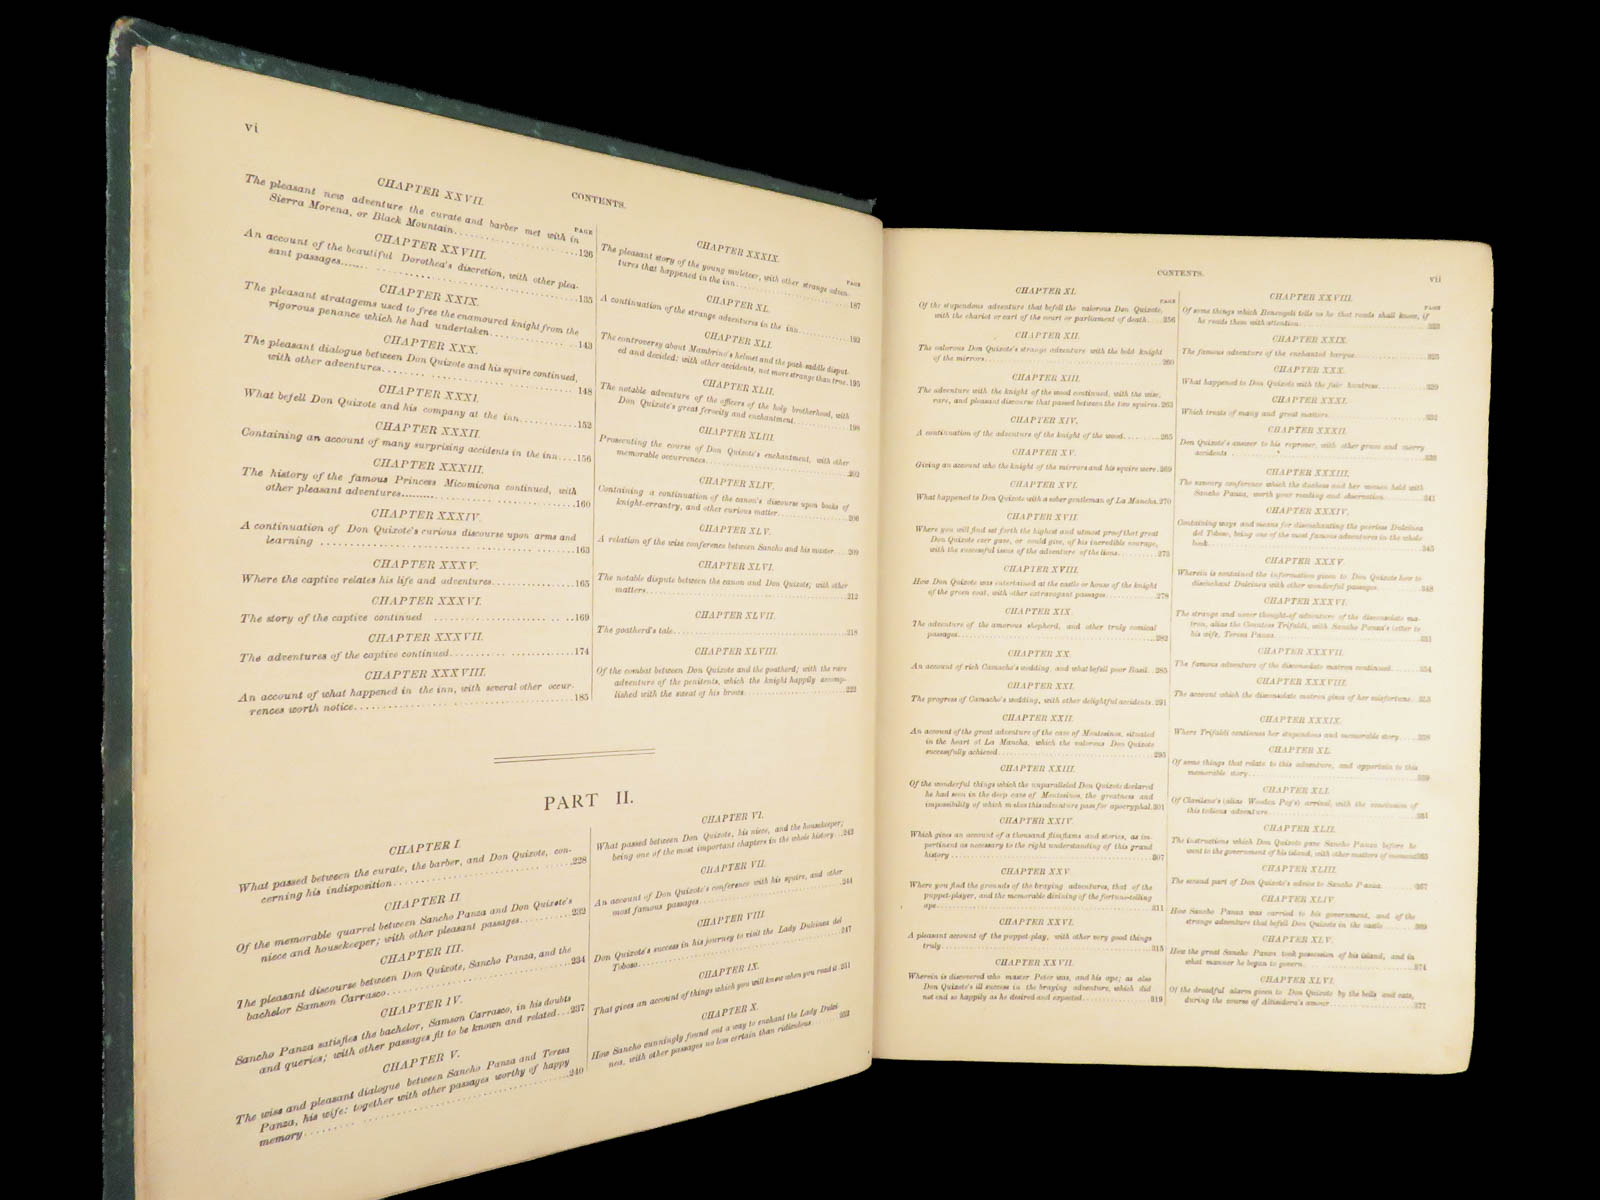 vi
CONTENTS.
CHAPTER XXVII.
PAGE
The pleasant new adventure the curate and barber met with in
Sierra Morena, or Black Mountain..................126
CHAPTER XXVIII.
An account of the beautiful Dorothea's discretion, with other plea-
sant passages..................135
CHAPTER XXIX.
The pleasant stratagems used to free the enamoured knight from the
rigorous penance which he had undertaken..................143
CHAPTER XXX.
The pleasant dialogue between Don Quixote and his squire continued,
with other adventures..................148
CHAPTER XXXI.
What befell Don Quixote and his company at the inn............152
CHAPTER XXXII.
Containing an account of many surprising accidents in the inn....156
CHAPTER XXXIII.
The history of the famous Princess Micomicona continued, with
other pleasant adventures..................160
CHAPTER XXXIV.
A continuation of Don Quixote's curious discourse upon arms and
learning ..................163
CHAPTER XXXV.
Where the captive relates his life and adventures...............165
CHAPTER XXXVI.
The story of the captive continued ..................169
CHAPTER XXXVII.
The adventures of the captive continued..................174
CHAPTER XXXVIII.
An account of what happened in the inn, with several other occur-
rences worth notice..................185
CHAPTER XXXIX.
PAGE
The pleasant story of the young muleteer, with other strange adven-
tures that happened in the inn..................187
CHAPTER XL.
A continuation of the strange adventures in the inn............192
CHAPTER XLI.
The controversy about Mambrino's helmet and the pack-saddle disput-
ed and decided; with other accidents, not more strange than true.195
CHAPTER XLII.
The notable adventure of the officers of the holy brotherhood, with
Don Quixote's great ferocity and enchantment..................198
CHAPTER XLIII.
Prosecuting the course of Don Quixote's enchantment, with other
memorable occurrences..................203
CHAPTER XLIV.
Containing a continuation of the canon's discourse upon books of
knight-errantry, and other curious matter..................206
CHAPTER XLV.
A relation of the wise conference between Sancho and his master....209
CHAPTER XLVI.
The notable dispute between the canon and Don Quixote; with other
matters..................212
CHAPTER XLVII.
The goatherd's tale..................218
CHAPTER XLVIII.
Of the combat between Don Quixote and the goatherd; with the rare
adventure of the penitents, which the knight happily accomp-
lished with the sweat of his brows..................221
PART II.
CHAPTER I.
What passed between the curate, the barber, and Don Quixote, con-
cerning his indisposition..................228
CHAPTER II.
Of the memorable quarrel between Sancho Panza and Don Quixote's
niece and housekeeper; with other pleasant passages..........232
CHAPTER III.
The pleasant discourse between Don Quixote, Sancho Panza, and the
bachelor Samson Carrasco..................234
CHAPTER IV.
Sancho Panza satisfies the bachelor, Samson Carrasco, in his doubts
and queries; with other passages fit to be known and related...237
CHAPTER V.
The wise and pleasant dialogue between Sancho Panza and Teresa
Panza, his wife: together with other passages worthy of happy
memory..................240
CHAPTER VI.
What passed between Don Quixote, his niece, and the housekeeper;
being one of the most important chapters in the whole history..243
CHAPTER VII.
An account of Don Quixote's conference with his squire, and other
most famous passages..................244
CHAPTER VIII.
Don Quixote's success in his journey to visit the Lady Dulcinea del
Toboso..................247
CHAPTER IX.
That gives an account of things which you will know when you read it.251
CHAPTER X.
How Sancho cunningly found out a way to enchant the Lady Dulci-
nea, with other passages no less certain than ridiculous.......253
CONTENTS.
vii
CHAPTER XI.
PAGE
Of the stupendous adventure that befell the valorous Don Quixote,
with the chariot or cart of the court or parliament of death....256
CHAPTER XII.
The valorous Don Quixote's strange adventure with the bold knight
of the mirrors..................260
CHAPTER XIII.
The adventure with the knight of the wood continued, with the wise,
rare, and pleasant discourse that passed between the two squires.263
CHAPTER XIV.
A continuation of the adventure of the knight of the wood.........265
CHAPTER XV.
Giving an account who the knight of the mirrors and his squire were.269
CHAPTER XVI.
What happened to Don Quixote with a sober gentleman of La Mancha.270
CHAPTER XVII.
Where you will find set forth the highest and utmost proof that great
Don Quixote ever gave, or could give, of his incredible courage,
with the successful issue of the adventure of the lions..........273
CHAPTER XVIII.
How Don Quixote was entertained at the castle or house of the knight
of the green coat, with other extravagant passages............278
CHAPTER XIX.
The adventure of the amorous shepherd, and other truly comical
passages..................282
CHAPTER XX.
An account of rich Camacho's wedding, and what befell poor Basil.285
CHAPTER XXI.
The progress of Camacho's wedding, with other delightful accidents.291
CHAPTER XXII.
An account of the great adventure of the cave of Montesinos, situated
in the heart of La Mancha, which the valorous Don Quixote
successfully achieved..................295
CHAPTER XXIII.
Of the wonderful things which the unparalleled Don Quixote declared
he had seen in the deep cave of Montesinos, the greatness and
impossibility of which makes this adventure pass for apocryphal.301
CHAPTER XXIV.
Which gives an account of a thousand flimflams and stories, as im-
pertinent as necessary to the right understanding of this grand
history ..................307
CHAPTER XXV
Where you find the grounds of the braying adventures, that of the
puppet-player, and the memorable divining of the fortune-telling
ape..................311
CHAPTER XXVI.
A pleasant account of the puppet-play, with other very good things
truly..................315
CHAPTER XXVII.
Wherein is discovered who master Peter was, and his ape; as also
Don Quixote's ill success in the braying adventure, which did
not end so happily as he desired and expected..................319
CHAPTER XXVIII.
PAGE
Of some things which Benengeli tells us he that reads shall know, if
he reads them with attention..................323
CHAPTER XXIX.
The famous adventure of the enchanted barque..................325
CHAPTER XXX.
What happened to Don Quixote with the fair huntress............329
CHAPTER XXXI.
Which treats of many and great matters..................331
CHAPTER XXXII.
Don Quixote's answer to his reprover, with other grave and merry
accidents ..................335
CHAPTER XXXIII.
The savoury conference which the duchess and her women held with
Sancho Panza, worth your reading and observation............341
CHAPTER XXXIV.
Containing ways and means for disenchanting the peerless Dulcinea
del Toboso, being one of the most famous adventures in the whole
book..................345
CHAPTER XXXV.
Wherein is contained the information given to Don Quixote how to
disenchant Dulcinea with other wonderful passages............348
CHAPTER XXXVI.
The strange and never thought-of adventure of the disconsolate ma-
tron, alias the Countess Trifaldi, with Sancho Panza's letter to
his wife, Teresa Panza..................351
CHAPTER XXXVII.
The famous adventure of the disconsolate matron continued.......354
CHAPTER XXXVIII.
The account which the disconsolate matron gives of her misfortune.355
CHAPTER XXXIX.
Where Trifaldi continues her stupendous and memorable story.....358
CHAPTER XL.
Of some things that relate to this adventure, and appertain to this
memorable story..................359
CHAPTER XLI.
Of Clavileno's (alias Wooden Peg's) arrival, with the conclusion of
this tedious adventure..................361
CHAPTER XLII.
The instructions which Don Quixote gave Sancho Panza before he
went to the government of his island, with other matters of moment365
CHAPTER XLIII.
The second part of Don Quixote's advice to Sancho Panza........367
CHAPTER XLIV
How Sancho Panza was carried to his government, and of the
strange adventure that befell Don Quixote in the castle........369
CHAPTER XLV.
How the great Sancho Panza took possession of his island, and in
what manner he began to govern..................374
CHAPTER XLVI.
Of the dreadful alarm given to Don Quixote by the bells and cats,
during the course of Altisidora's amour..................377